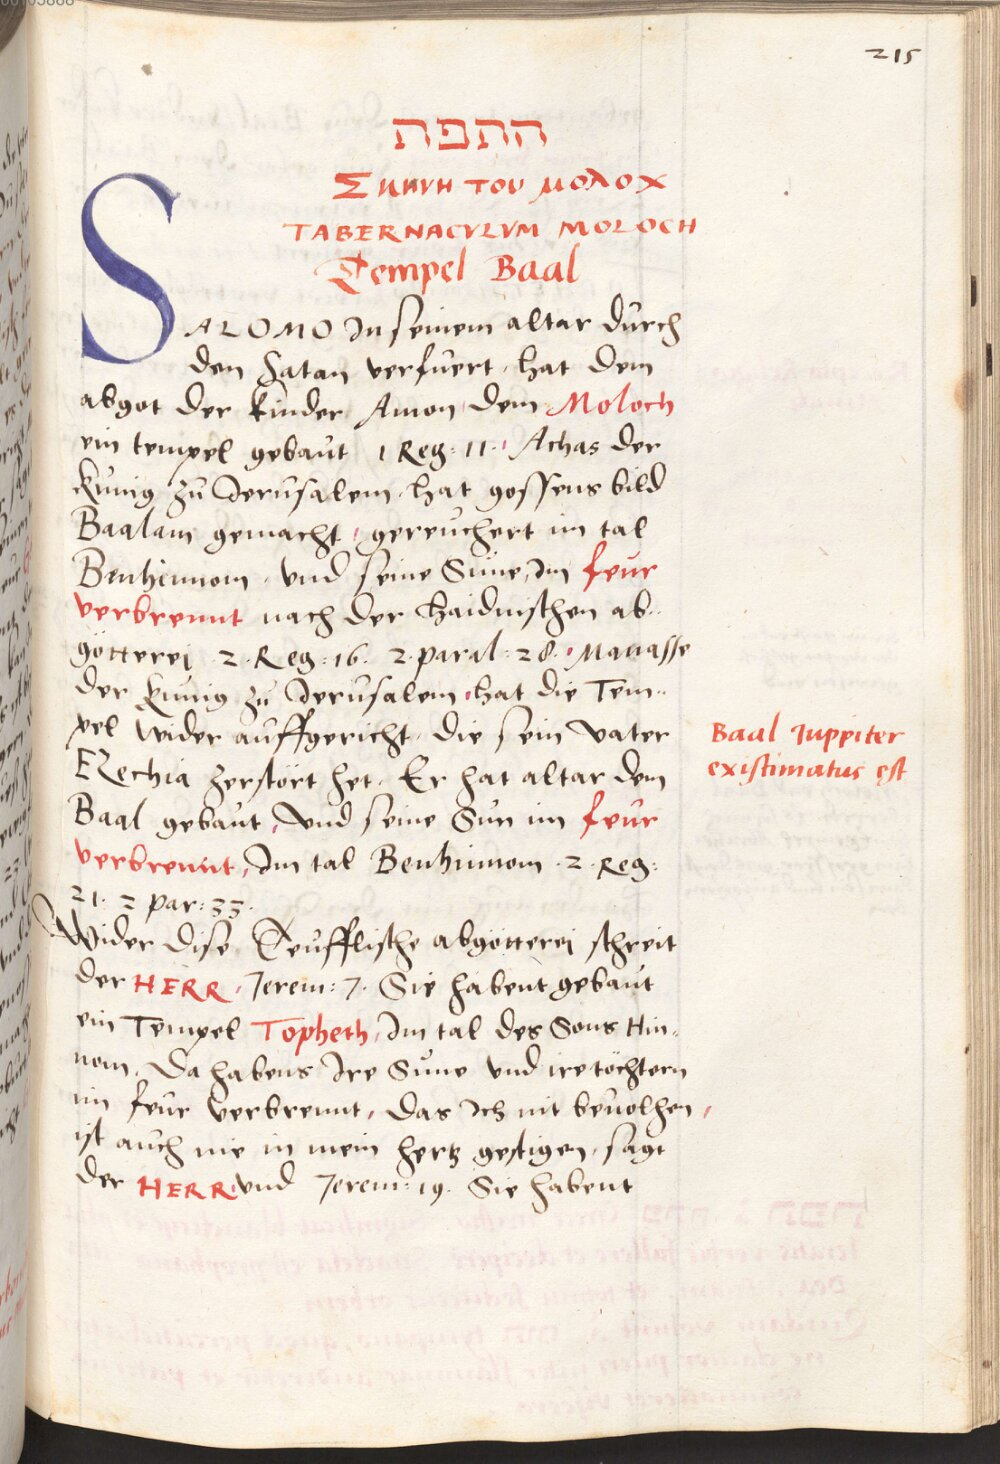 215
התפת
Σκηνη του μολοχ
TABERNACVLVM MOLOCH
Tempel Baal
SALOMO In seinem altar durch
den Satan verfuert, hat dem
abgot der kinder Amon, dem Moloch
ein tempel gebaut 1 Reg: 11. Achas der
Kunig zu Jerusalem, hat gossens bild
Baalam gemacht, gereuchert im tal
Benhinnom, und seine Süne, Im feur
verbrennt nach der Haidnischen ab-
götterej 2. Reg: 16. 2. paral: 28. Manasse
der Kunig zu Jerusalem, hat die Tem-
pel wider auffgericht, die sein vater
EZechia zerstört het. Er hat altar dem
Baal gebaut, und seine Sun im feur
verbrennt, Im tal Benhinnom. 2. Reg:
21. 2 par: 33.
Wider dise Teufflische abgötterej schreit
der HERR, Jerem: 7. Sie habent gebaut
ein Tempel Topheth, Im tal des Sons Hin-
nom, Da habens Ire Süne und ire töchtern
im feur verbrennt, das Ich nit bevolhen,
ist auch nie in mein hertz gestigen, sagt
der HERR und Jerem: 19. Sie habent
Baal Iuppiter
existimatus est